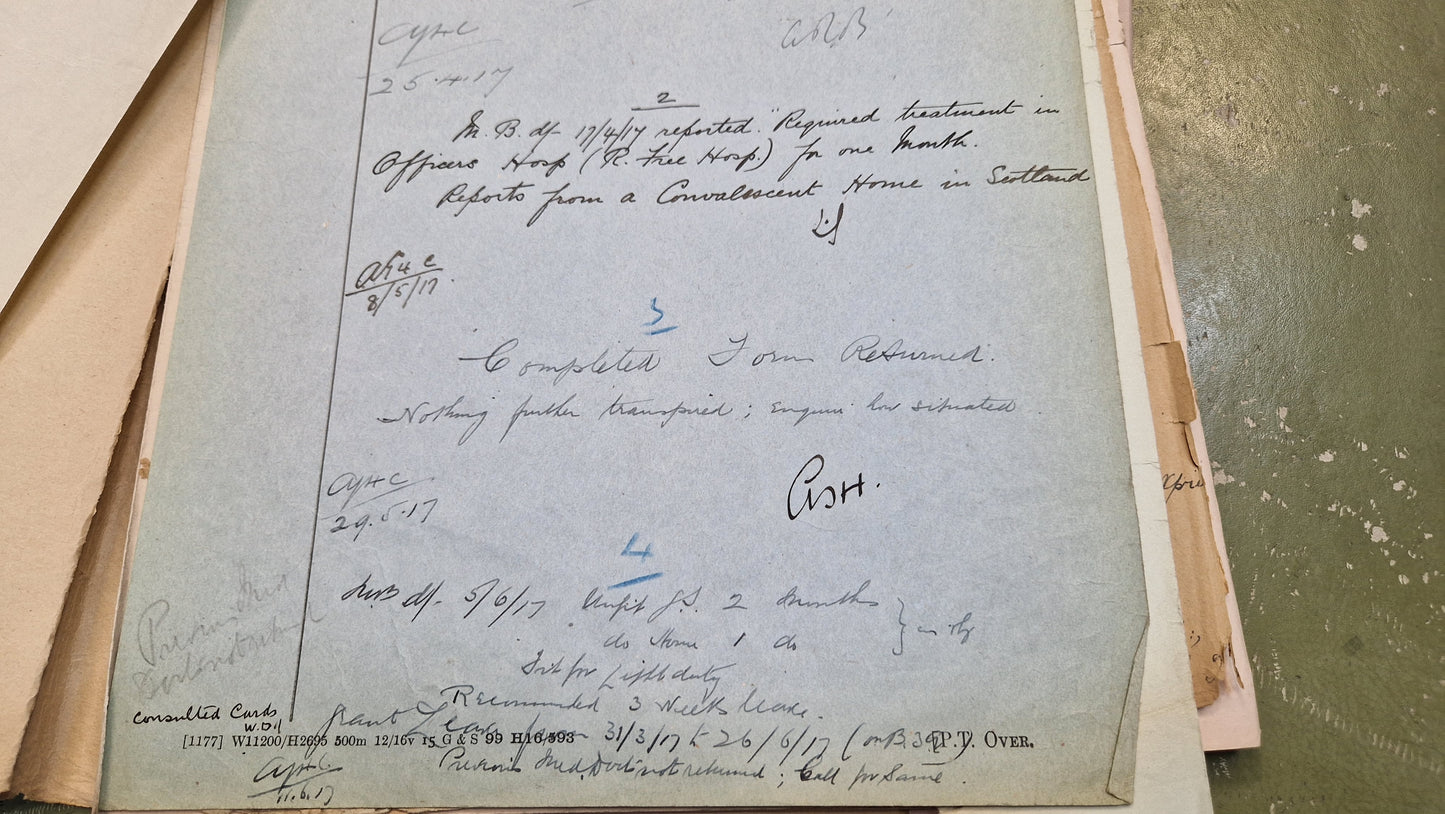 25.4.17
2
M. B. df 17/4/17 reported. "Required treatment in
Officers Hosp (R. Free Hosp.) for one Month.
Reports from a Convalescent Home in Scotland
8/5/17
3
Completed Form Returned.
Nothing further transpired; Enquire how situated
29.5.17
4
df 5/6/17 Unfit G.S. 2 Months
do Home 1 do
Fit for Light duty
Recommended 3 Weeks leave.
Consulted Cards
Grant Leave from 31/3/17 to 26/6/17 (on B.39
[1177] W11200/H2695 500m 12/16v 15 G & S 99 H16/593 [P.T. OVER.
Previous Med. not returned; Call for Same.
11.6.17